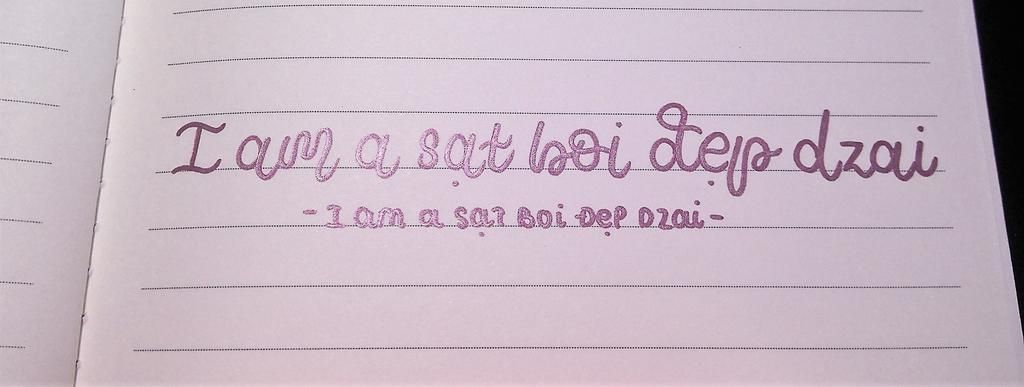 I am a sạt boi đẹp dzai
- I am a sạt Boi Đẹp Dzai -